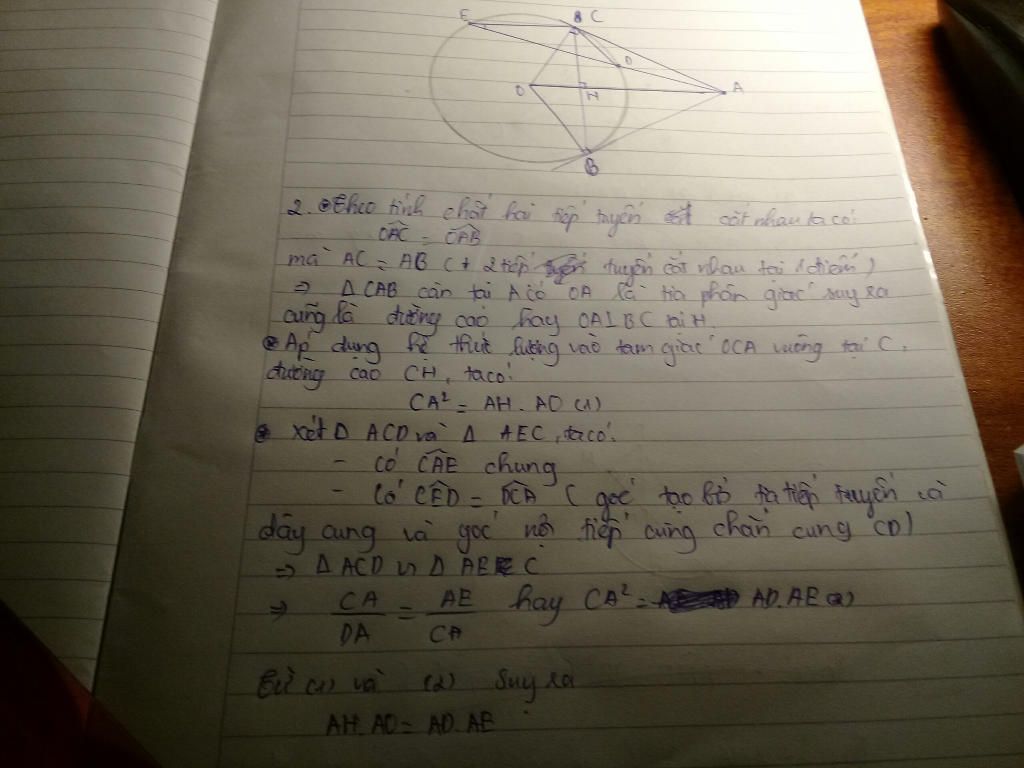 E
C
D
O
H
A
B
2. Theo tính chất hai tiếp tuyến cắt nhau ta có:
OAC = OAB
mà AC = AB (t 2 tiếp tuyến cắt nhau tại 1 điểm)
⇒ Δ CAB cân tại A có OA là tia phân giác suy ra
cũng là đường cao hay OA⊥BC tại H.
Áp dụng hệ thức lượng vào tam giác OCA vuông tại C,
đường cao CH, ta có:
CA² = AH. AO (1)
Xét Δ ACD và Δ AEC, ta có:
- Có CAE chung
- Có CED = DCA ( góc tạo bởi tia tiếp tuyến và
dây cung và góc nội tiếp cùng chắn cung CD)
⇒ Δ ACD ∽ Δ AEC
⇒ CA/DA = AE/CA hay CA² = AD.AE (2)
Từ (1) và (2) suy ra
AH.AO = AD.AE